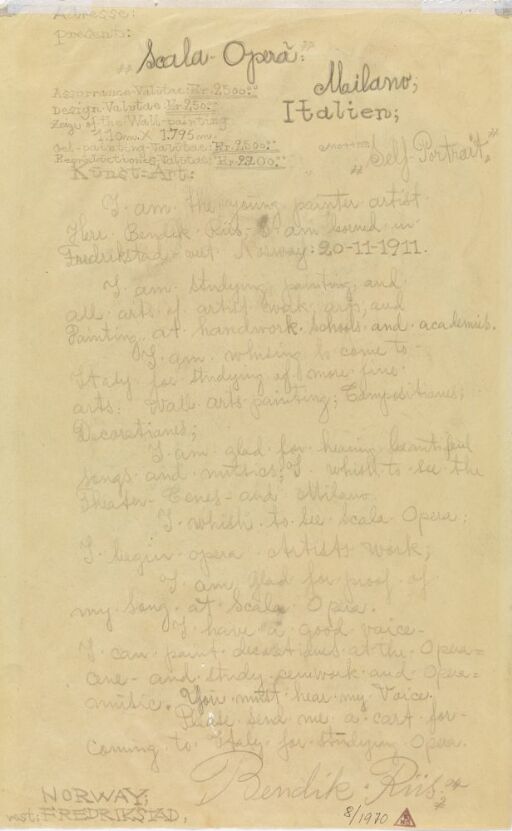 Adresse:
present:
"Scala-Opera:"
Milano;
Italien;
Assurrance-Valutae: Kr.2500:
Design-Valutae Kr.250:
of the Wall-painting
1.10 m. X 1.795 m.
Oel-painting-Valutae: Kr.2500:
Reproductiones Valutae: Kr.2200:
"Self-Portrait"
Kunst-Art:
I am the young painter artist
Here Bendik Riis- I am borned in
Fredrikstad- Norway: 20-11-1911.
I am studying painting and
all arts of artist work arts, and
Painting at handwork schools and academies.
I am whising to come to-
Italy for studying of more fine
arts: Wall arts painting; Compositiones;
Decorationes;
I am glad for hearing beautiful
songs and musics; I whish to see the
Theater- and Milano.
I whish to see Scala Opera;
I begun opera artists work;
I am glad for proof of
my song at Scala Opera.
I have a good voice-
I can paint decorationes at the Opera=
and study penwork and Opera=
music. You must hear my Voice.
Please send me a cart for-
coming to Italy for studying Opera.
Bendik Riis.
NORWAY;
FREDRIKSTAD,
8/1970